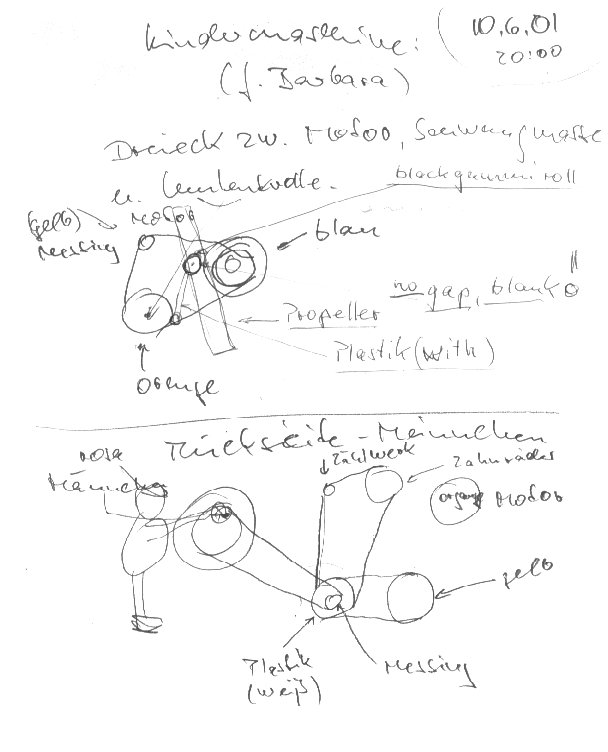 Kindermaschine:
10.6.01
20:00
(f. Barbara)
Dreieck zw. Motor, Schwungmasse
u. Umlenkrolle.
black gummi roll
(gelb)
Messing
Motor
blau
no gap, blank
Propeller
Plastik (with)
orange
Rückseite - Männchen
rosa
Männchen
Zählwerk
Zahnräder
orange
Motor
gelb
Plastik
(weiß)
Messing